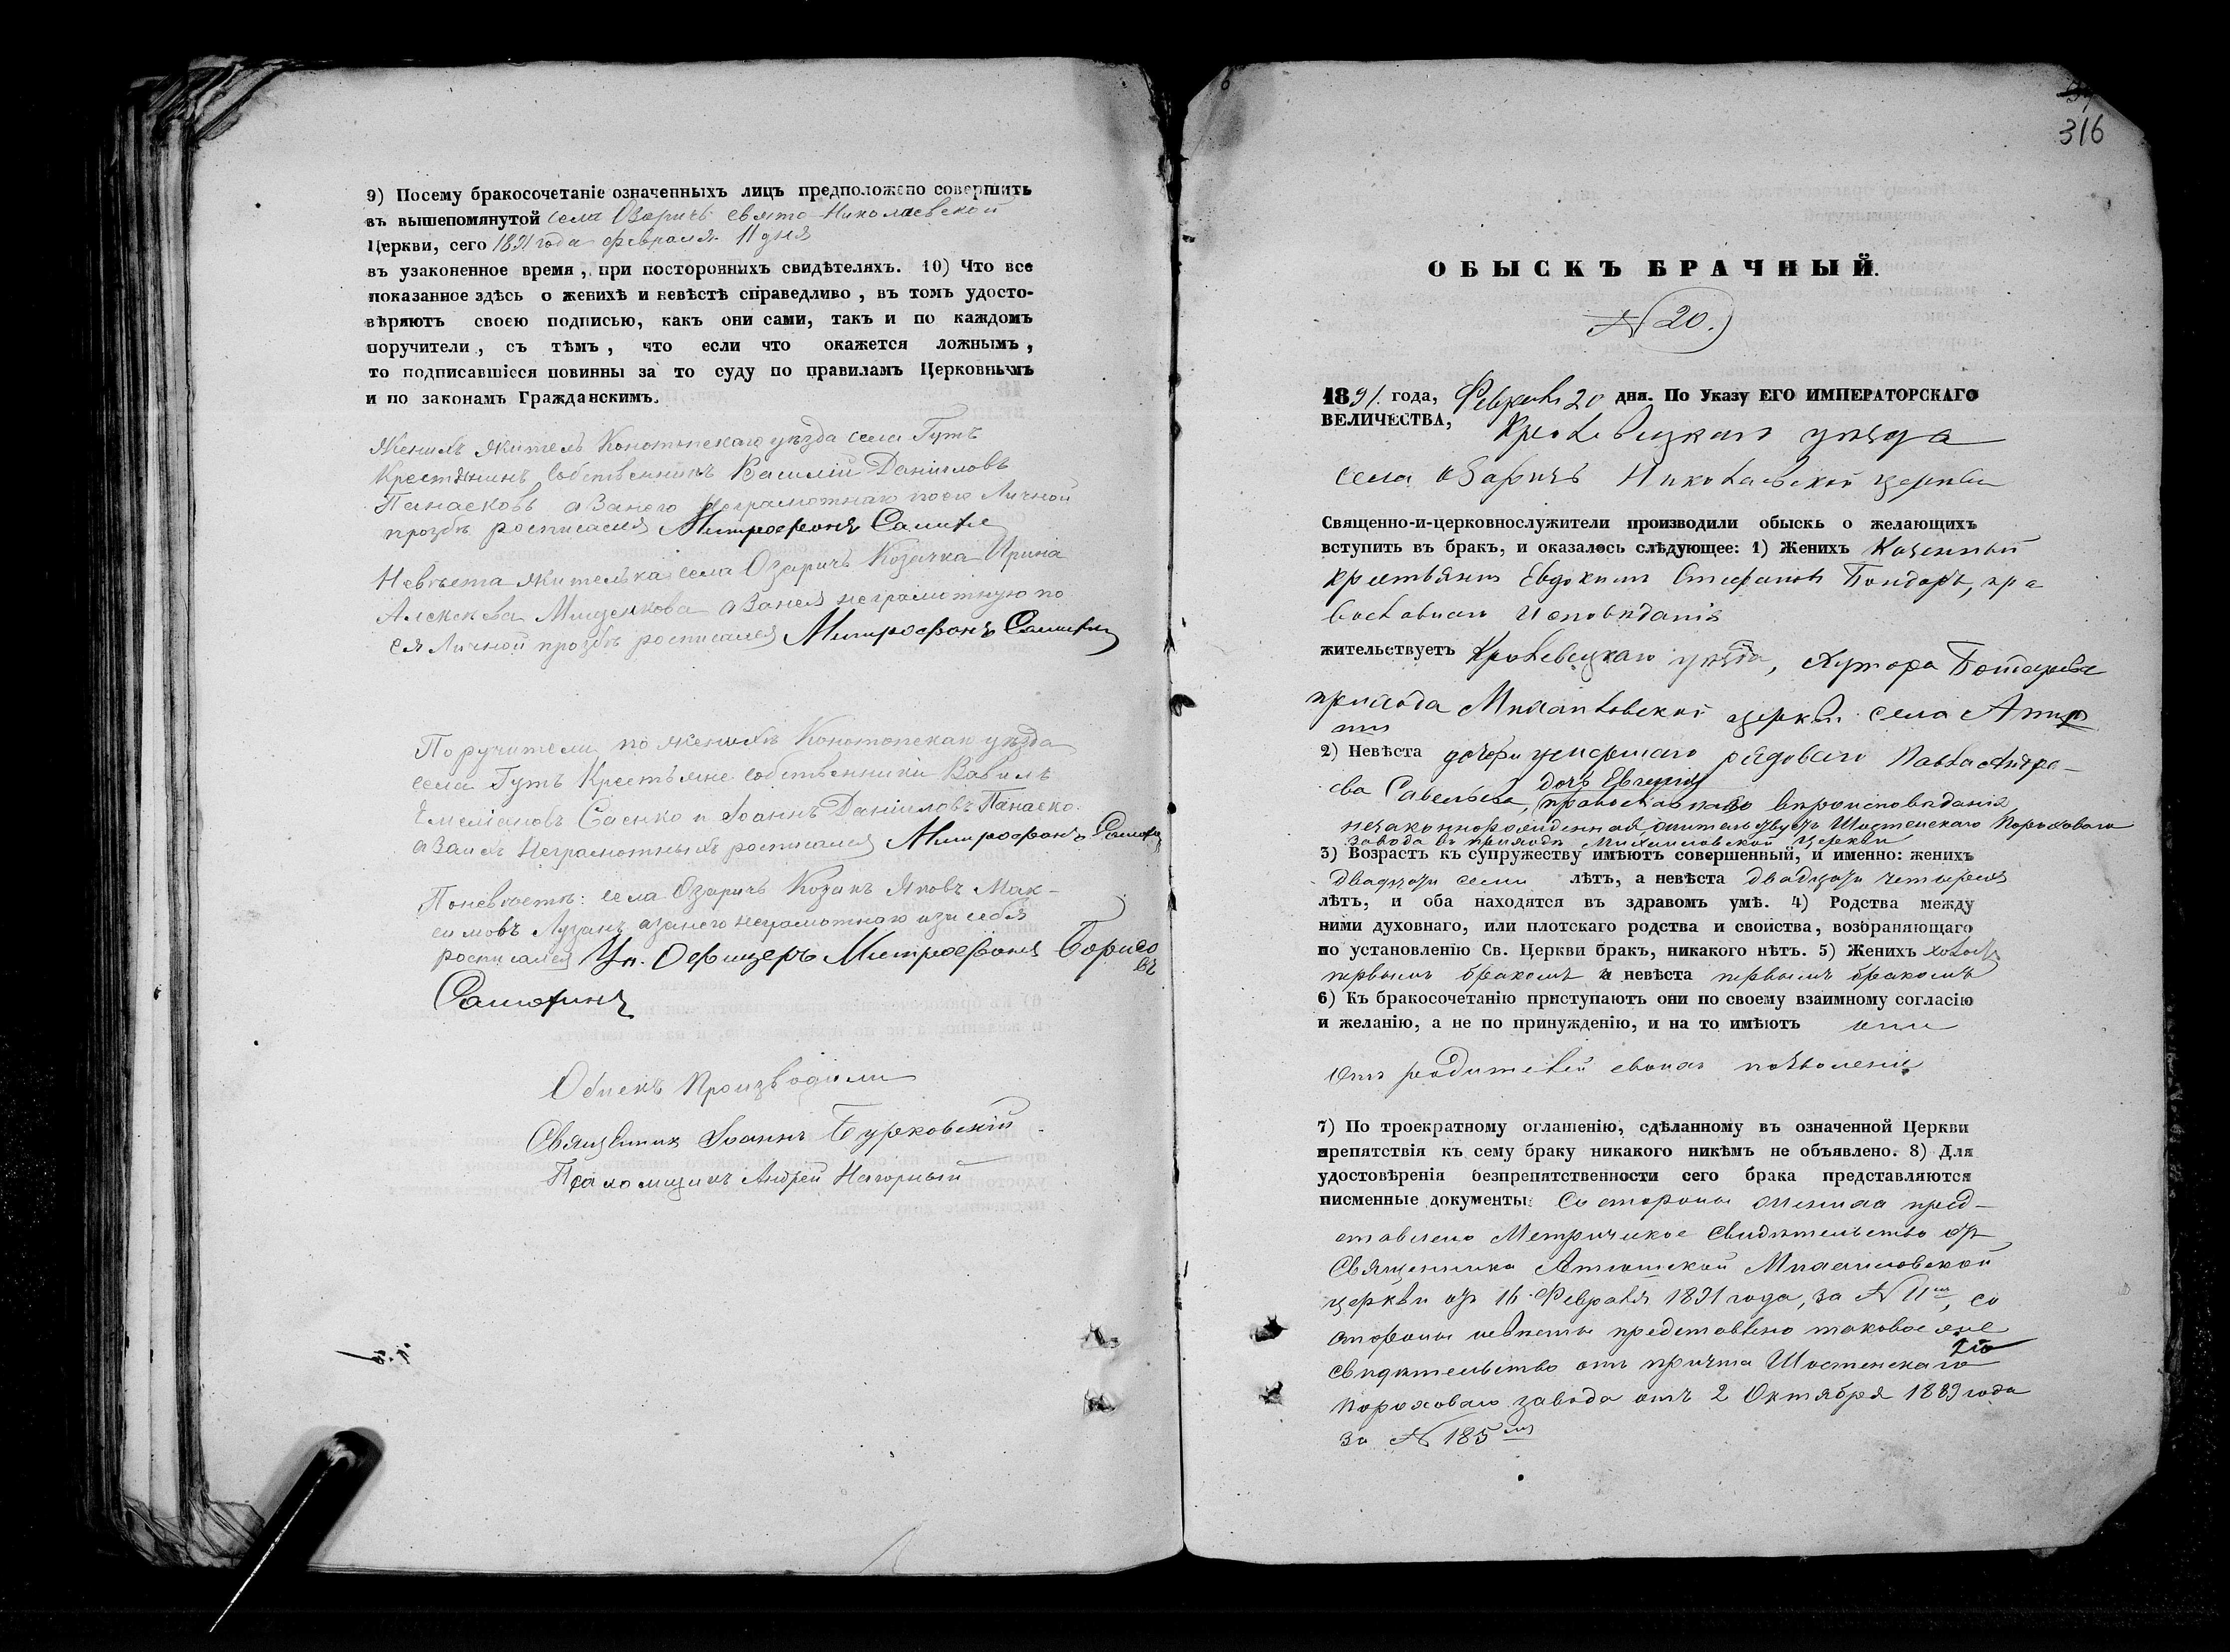 9) Посему бракосочетаніе означенныхъ лицъ предположено совершить
въ вышепомянутой села Озаричъ свято Николаевской
Церкви, сего 1891 года февраля 11 дня
въ узаконенное время, при постороннихъ свидѣтеляхъ. 10) Что все
показанное здѣсь о женихѣ и невѣстѣ справедливо, въ томъ удосто-
вѣряютъ своею подписью, какъ они сами, такъ и по каждомъ
поручители, съ тѣмъ, что если что окажется ложнымъ,
то подписавшіеся повинны за то суду по правиламъ Церковнымъ
и по законамъ Гражданскимъ.
Женихъ житель Конотопскаго уѣзда села Гутъ
Крестянинъ Собственникъ Василій Даніиловъ
Панасковъ а Занего Неграмотнаго поего Личной
прозбѣ росписался Митрофанъ
Невѣста жителька села Озаричъ Козачка Ирина
Алексѣева а Занея неграмотную по
ея Личной прозбѣ росписался Митрофанъ
Поручители по женихѣ Конотопскаго уѣзда
села Гутъ Крестьяне собственники Вавилъ
Емеліановъ Саенко и Іоаннъ Даніиловъ Панаско
а Заихъ Неграмотныхъ росписался Митрофанъ
Поневѣстѣ: села Озаричъ Козакъ Яковъ Мак-
симовъ Лузанъ азанего неграмотнаго изасебя
росписался Ун. Офицеръ Митрофанъ Борисо
въ
Обискъ Производили
Священникъ Іоаннъ Бурковскій
Псаломщикъ Андрей Нагорный
316
ОБЫСКЪ БРАЧНЫЙ.
N 20.
1891. года, Февраля 20 дня. По Указу ЕГО ИМПЕРАТОРСКАГО
ВЕЛИЧЕСТВА, Кролевецкаго уѣзда
села Озаричъ Николаевской церкви
Священно-и-церковнослужители производили обыскъ о желающихъ
вступить въ бракъ, и оказалось слѣдующее: 1) Женихъ Казенный
крестьянинъ Евдокимъ Стефановъ Бондарь, пра
вославнаго исповѣданія
жительствуетъ Кролевецкаго уѣзда, хутора
прихода Михайловской церкви села
2) Невѣста дочери умершаго рядового Павла Андре-
ева Савельева, дочь Евгенія православнаго вѣроисповѣданія
незаконнорожденная, жительствуетъ Шостенскаго Пороховаго
завода въ приходѣ Михайловской церкви
3) Возрастъ къ супружеству имѣютъ совершенный, и именно: женихъ
двадцати семи лѣтъ, а невѣста двадцати четырехъ
лѣтъ, и оба находятся въ здравомъ умѣ. 4) Родства между
ними духовнаго, или плотскаго родства и свойства, возбраняющаго
по установленію Св. Церкви бракъ, никакого нѣтъ. 5) Женихъ холостъ
первымъ бракомъ а невѣста первымъ бракомъ
6) Къ бракосочетанію приступаютъ они по своему взаимному согласію
и желанію, а не по принужденію, и на то имѣютъ они
отъ родителей своихъ позволеніе
7) По троекратному оглашенію, сдѣланному въ означенной Церкви
препятствія къ сему браку никакого никѣмъ не объявлено. 8) Для
удостовѣренія безпрепятственности сего брака представляются
писменные документы: Со стороны жениха пред-
ставлено Метрическое Свидѣтельство отъ
Священника Атюшской Михайловской
церкви отъ 16 Февраля 1891 года, за N 11мъ, со
стороны невѣсты представлено таковое же
свидѣтельство отъ причта Шостенскаго
пороховаго завода отъ 2 Октября 1889 года
за N 185мъ